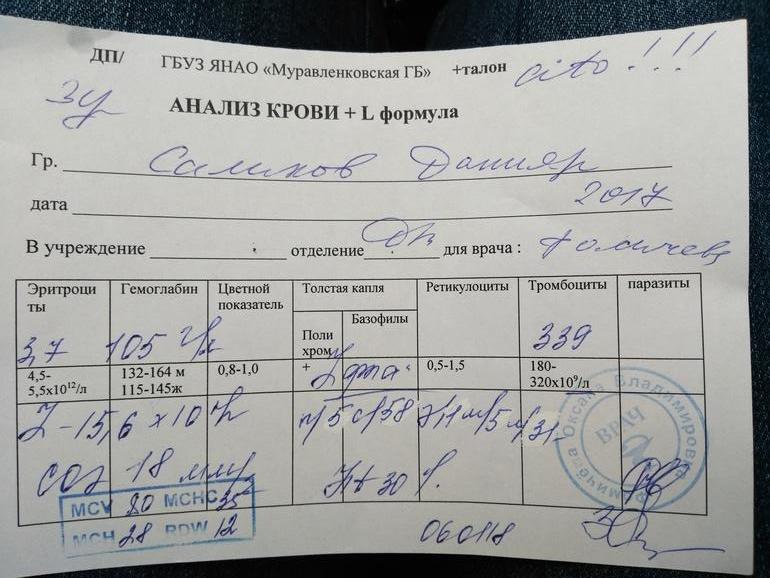 ДП/ ГБУЗ ЯНАО «Муравленковская ГБ» +талон cito!!!
АНАЛИЗ КРОВИ + L формула
Гр. Салихов Данияр
дата 2017
В учреждение отделение для врача :
Эритроци ты Гемоглабин Цветной показатель Толстая капля Ретикулоциты Тромбоциты паразиты
Поли хром Базофилы
3,7 105 г/л 339
4,5-5,5х10¹²/л 132-164 м 115-145ж 0,8-1,0 + 0,5-1,5 180-320х10⁹/л
L-15,6 х 10 п/5 с/58 э/1 м/5 л/31
СОЭ 18 мм
MCV 80 MCHC 35
MCH 28 RDW 12
060118
Оксана Владимировна
ВРАЧ